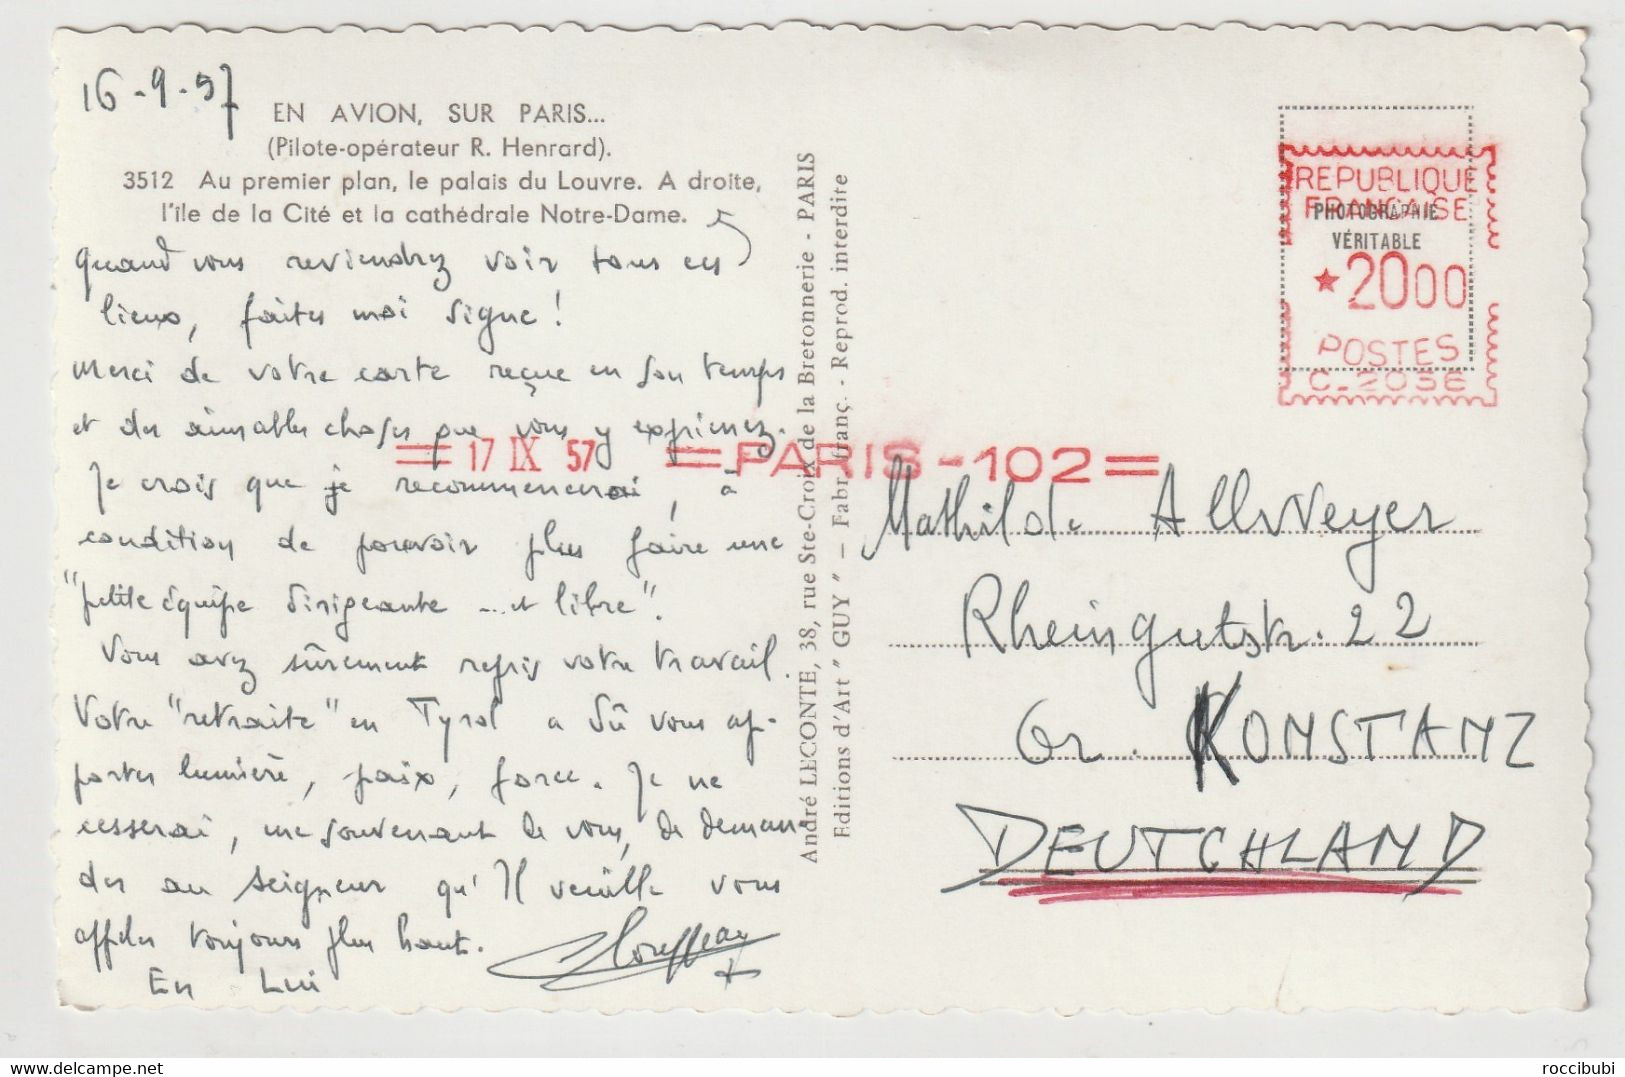 16-9-57
EN AVION, SUR PARIS...
(Pilote-opérateur R. Henrard).
3512 Au premier plan, le palais du Louvre. A droite,
l'île de la Cité et la cathédrale Notre-Dame.
Quand vous reviendrez voir tous ces
lieux, faites moi signe !
Merci de votre carte reçue en son temps
et des aimables choses que vous y exprimez.
Je crois que je recommencerai, à
condition de pouvoir plus faire une
"petite équipe dirigeante ... et libre".
Vous avez sûrement repris votre travail.
Votre "retraite" en Tyrol a dû vous ap-
porter lumière, paix, force. Je ne
cesserai, me souvenant de vous, de deman-
der au Seigneur qu'Il veuille vous
appeler toujours plus haut.
En Lui
André LECONTE, 38, rue Ste-Croix de la Bretonnerie - PARIS
Editions d'Art "GUY" - Fabr. franç. - Reprod. interdite
REPUBLIQUE
FRANCAISE
PHOTOGRAPHIE
VÉRITABLE
★2000
POSTES
C.2036
17 IX 57 = PARIS-102 =
Mathilde Allweyer
Rheingutstr. 22
Gr. KONSTANZ
DEUTCHLAND
roccibubi